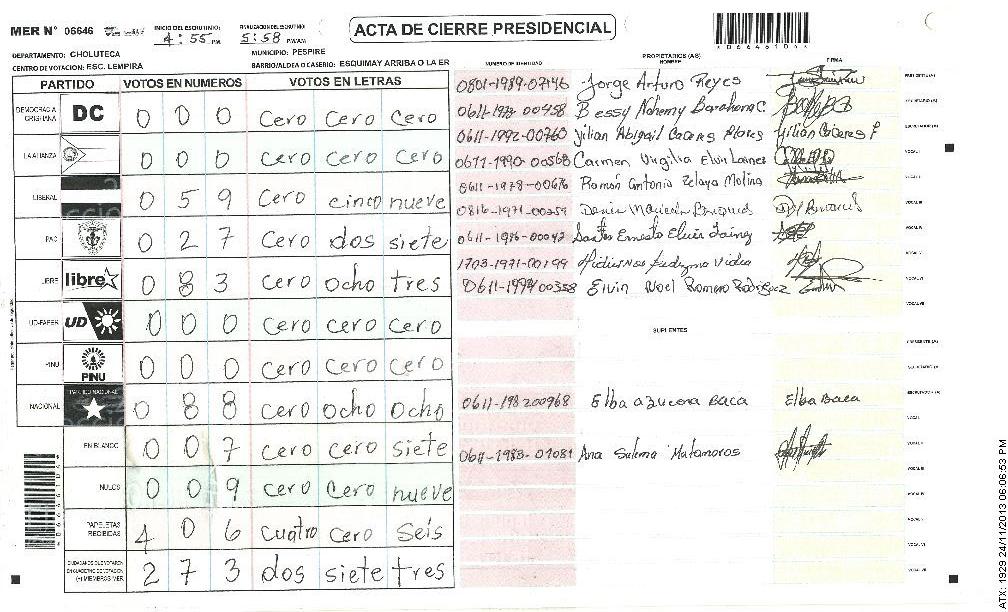 MER N° 06646
INICIO DEL ESCRUTINIO: 4:55 P.M
FINALIZACION DEL ESCRUTINIO 5:58 P.M/A.M
ACTA DE CIERRE PRESIDENCIAL
DEPARTAMENTO: CHOLUTECA
MUNICIPIO: PESPIRE
CENTRO DE VOTACION: ESC. LEMPIRA
BARRIO/ALDEA O CASERIO: ESQUIMAY ARRIBA O LA ER
NUMERO DE IDENTIDAD
PROPIETARIOS (AS)
NOMBRE
FIRMA
PARTIDO VOTOS EN NUMEROS VOTOS EN LETRAS
DEMOCRACIA CRISTIANA DC 0 0 0 cero cero cero
LA ALIANZA 0 0 0 cero cero cero
LIBERAL 0 5 9 cero cinco nueve
PAC 0 2 7 cero dos siete
LIBRE libre 0 8 3 cero ocho tres
UD-FAPER UD 0 0 0 cero cero cero
PINU PINU 0 0 0 cero cero cero
NACIONAL PARTIDO NACIONAL 0 8 8 cero ocho ocho
EN BLANCO 0 0 7 cero cero siete
NULOS 0 0 9 cero cero nueve
PAPELETAS RECIBIDAS 4 0 6 cuatro cero seis
CIUDADANOS QUE VOTARON EN CUADERNO DE VOTACION (+) MIEMBROS MER 2 7 3 dos siete tres
0801-1989-07446 Jorge Arturo Reyes
0611-1978 00458 Bessy Nohemy Barahona C.
0611-1992-00760 Yilian Abigail Caceres Flores Yilian Cáceres F
0611-1990-00568 Carmen Virgilia Elvir Laines
0611-1978-00676 Ramón Antonio Zelaya Molina
0816-1971-00259
0611-1986-00042 Santos Ernesto Elvir
1703-1971-00199
0611-1994 00358 Elvin Noel Romero Rodriguez
SUPLENTES
0611-198200968 Elba azucena Baca Elba Baca
0611-1983-01081 Ana Salema Matamoros
ATX: 1929 24/11/2013 06:06:53 PM